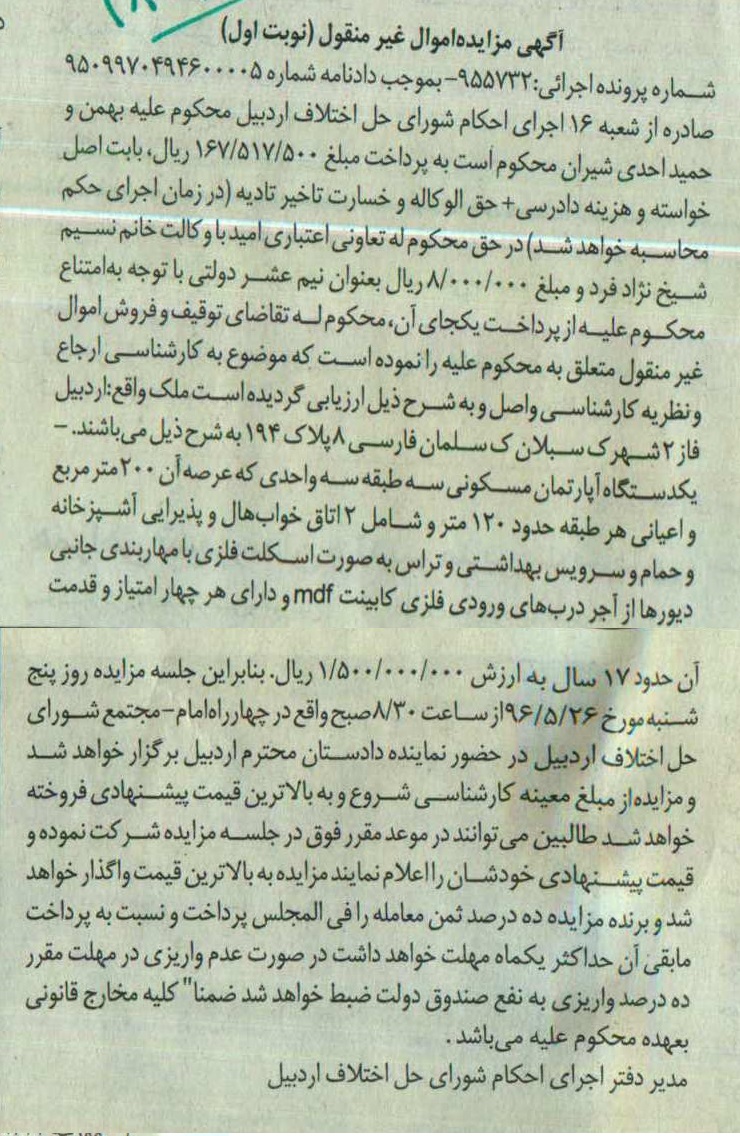 آگهی مزایده‌اموال غیر منقول (نوبت اول)
شماره پرونده اجرائی:۹۵۵۷۳۲-بموجب دادنامه شماره ۹۵۰۹۹۷۰۴۹۴۶۰۰۰۰۵
صادره از شعبه ۱۶ اجرای احکام شورای حل اختلاف اردبیل محکوم علیه بهمن و
حمید احدی شیران محکوم است به پرداخت مبلغ ۱۶۷/۵۱۷/۵۰۰ ریال، بابت اصل
خواسته و هزینه دادرسی+ حق الوکاله و خسارت تاخیر تادیه (در زمان اجرای حکم
محاسبه خواهد شد) در حق محکوم له تعاونی اعتباری امید با وکالت خانم نسیم
شیخ نژاد فرد و مبلغ ۸/۰۰۰/۰۰۰ ریال بعنوان نیم عشر دولتی با توجه به‌امتناع
محکوم علیه از پرداخت یکجای آن، محکوم له تقاضای توقیف و فروش اموال
غیر منقول متعلق به محکوم علیه را نموده است که موضوع به کارشناسی ارجاع
و نظریه کارشناسی واصل و به شرح ذیل ارزیابی گردیده است ملک واقع:اردبیل
فاز ۲ شهرک سبلان ک سلمان فارسی ۸ پلاک ۱۹۴ به شرح ذیل می‌باشند. -
یکدستگاه آپارتمان مسکونی سه طبقه سه واحدی که عرصه آن ۲۰۰ متر مربع
و اعیانی هر طبقه حدود ۱۲۰ متر و شامل ۲ اتاق خواب‌هال و پذیرایی آشپزخانه
و حمام و سرویس بهداشتی و تراس به صورت اسکلت فلزی با مهاربندی جانبی
دیورها از آجر درب‌های ورودی فلزی کابینت mdf و دارای هر چهار امتیاز و قدمت
آن حدود ۱۷ سال به ارزش ۱/۵۰۰/۰۰۰/۰۰۰ ریال. بنابراین جلسه مزایده روز پنج
شنبه مورخ ۹۶/۵/۲۶ از ساعت ۸/۳۰ صبح واقع در چهارراه‌امام-مجتمع شورای
حل اختلاف اردبیل در حضور نماینده دادستان محترم اردبیل برگزار خواهد شد
و مزایده‌از مبلغ معینه کارشناسی شروع و به بالاترین قیمت پیشنهادی فروخته
خواهد شد طالبین می‌توانند در موعد مقرر فوق در جلسه مزایده شرکت نموده و
قیمت پیشنهادی خودشان را اعلام نمایند مزایده به بالاترین قیمت واگذار خواهد
شد و برنده مزایده ده درصد ثمن معامله را فی المجلس پرداخت و نسبت به پرداخت
مابقی آن حداکثر یکماه مهلت خواهد داشت در صورت عدم واریزی در مهلت مقرر
ده درصد واریزی به نفع صندوق دولت ضبط خواهد شد ضمنا" کلیه مخارج قانونی
بعهده محکوم علیه می‌باشد .
مدیر دفتر اجرای احکام شورای حل اختلاف اردبیل